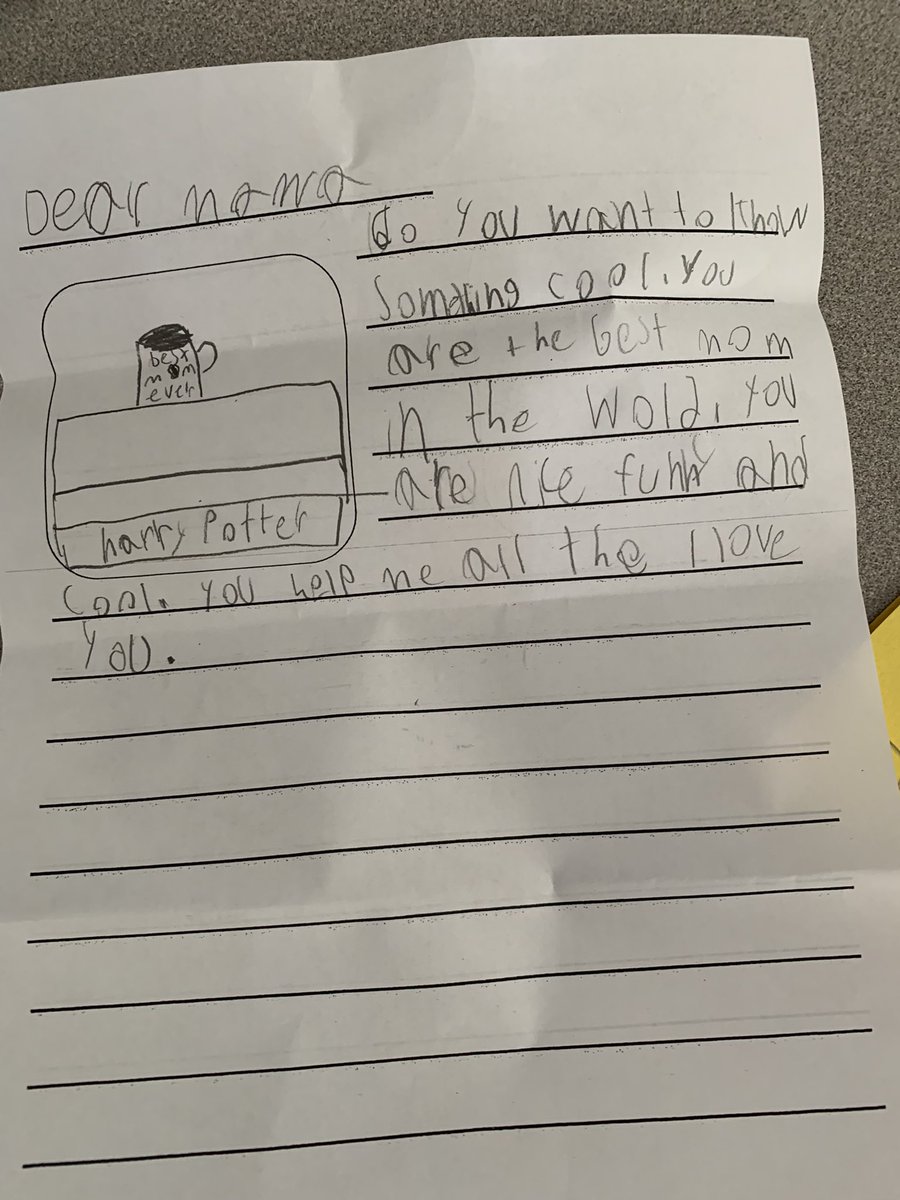 Dear mama
do you want to know
Somthing cool. You
are the best mom
in the wold. you
are nice funny and
best
mom
ever
harry Potter
cool. you help me all the I love
you.